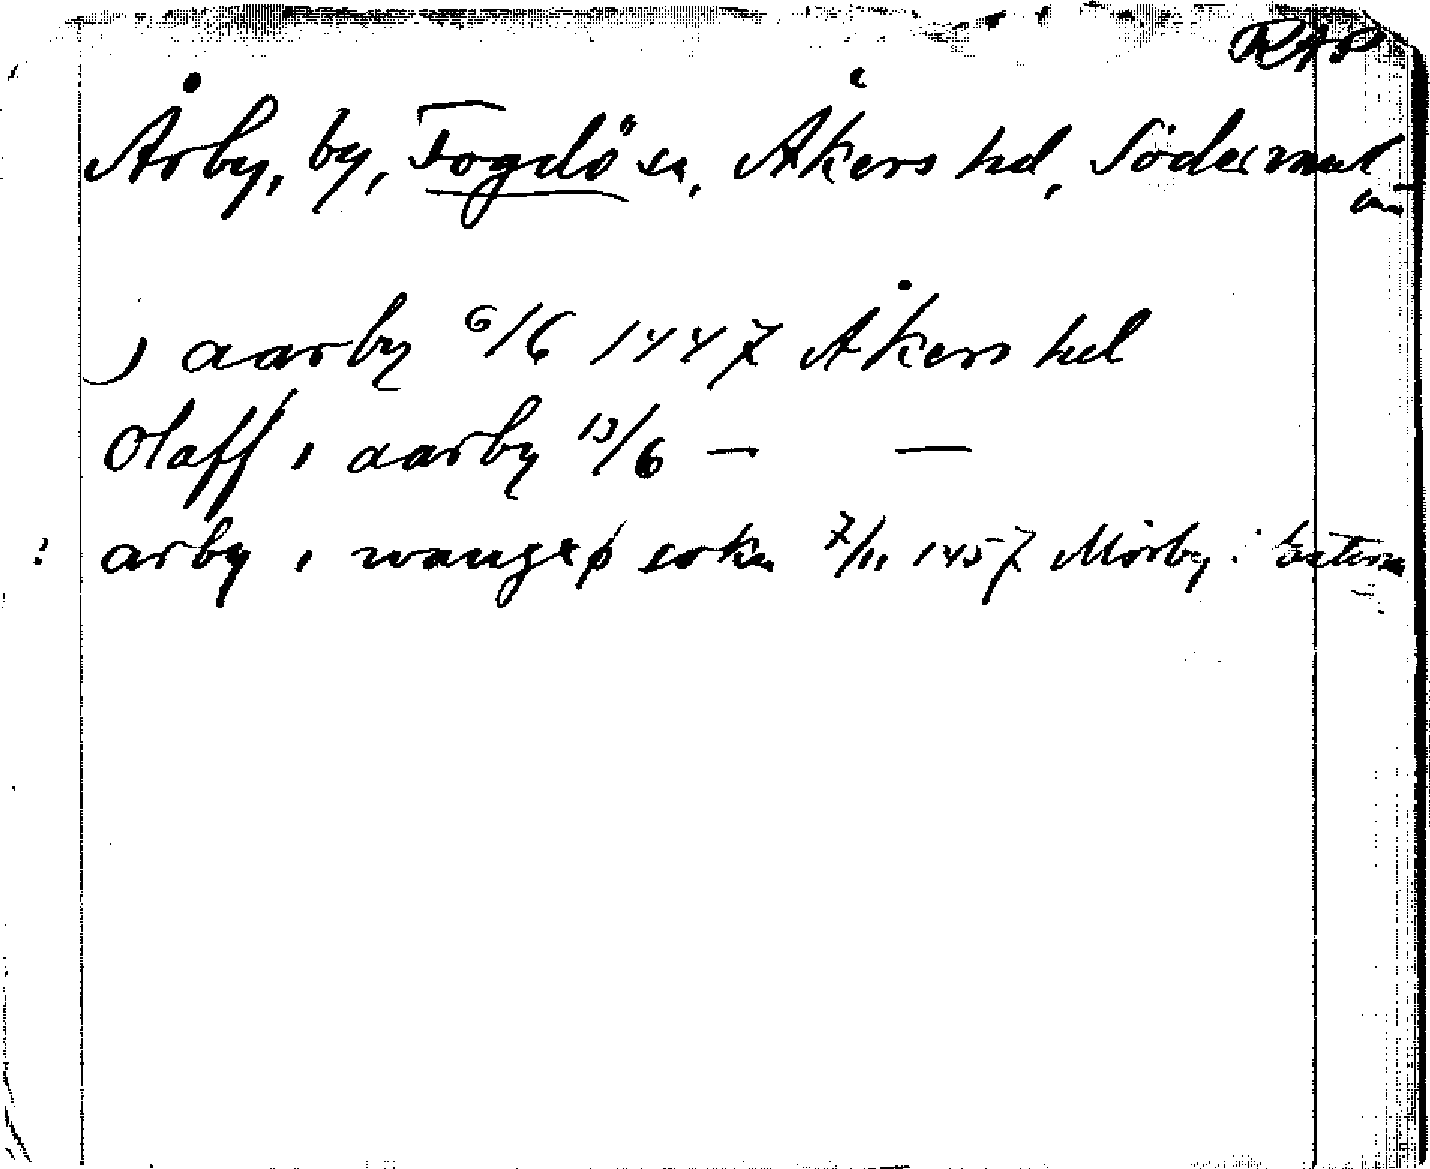 RAP
Årby, by, Fogdö sn, Åkers hd, Södermanl
) aarby 6/6 1447 Åkers hd
Olaff i aarby 13/6 — —
? arby i wangxø sokn 7/11 1457 Mörby i